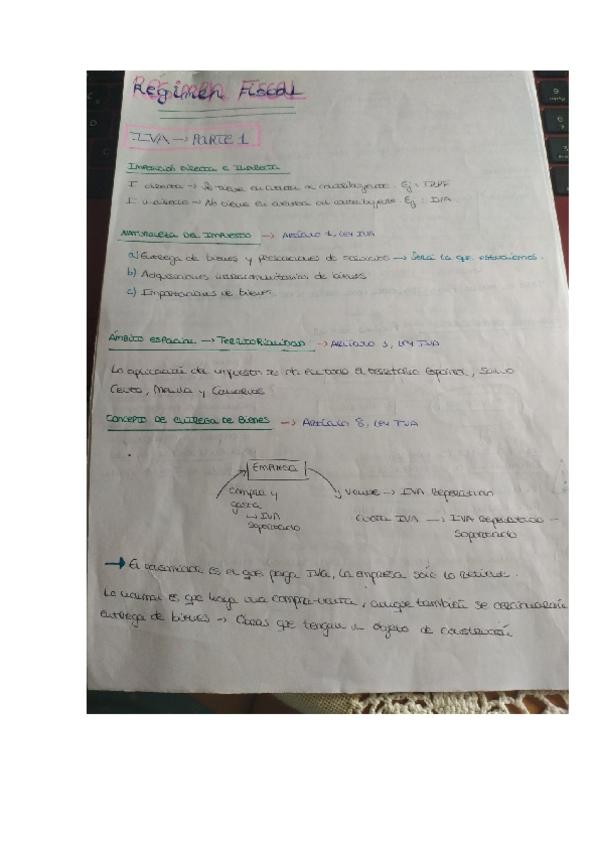 Régimen Fiscal
IVA → PARTE 1
Imposición directa e indirecta
I directa → Se tiene en cuenta al contribuyente. Ej: IRPF
I indirecto → No tiene en cuenta al contribuyente. Ej: IVA
NATURALEZA DEL IMPUESTO → ARTÍCULO 1, LEY IVA
a) Entrega de bienes y prestaciones de servicios → Será la que estudiemos.
b) Adquisiciones intracomunitarias de bienes
c) Importaciones de bienes
ÁMBITO ESPACIAL → TERRITORIALIDAD → ARTÍCULO 3, LEY IVA
La aplicación del impuesto es en todo el territorio español, salvo
Ceuta, Melilla y Canarias
CONCEPTO DE ENTREGA DE BIENES → ARTÍCULO 8, LEY IVA
EMPRESA
compra y
gasta
→ IVA
soportado
vende → IVA Repercutido
Cuota IVA → IVA Repercutido -
Soportado
→ El consumidor es el que paga IVA, la empresa sólo lo
Lo normal es que haya una compra-venta, aunque también se
entrega de bienes → Obras que tengan un objeto de construcción